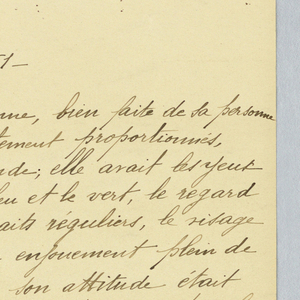 51 —
nne, bien faite de sa personne
tement proportionnés,
nde; elle avait les yeux
eu et le vert, le regard
aits réguliers, le visage
enjouement plein de
son attitude était